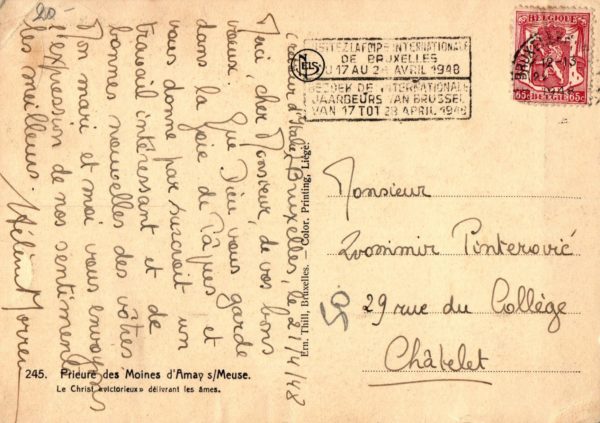 20-
(retour d'Italie) Bruxelles, le 21/4/48
Merci, cher Monsieur, de vos bons
voeux. Que Dieu vous garde
dans la Joie de Pâques et
vous donne par surcroît un
travail intéressant et de
bonnes nouvelles des vôtres
Mon mari et moi vous envoyons
l'expression de nos sentiments
les meilleurs. Hélène Morren
245. Prieuré des Moines d'Amay s/Meuse.
Le Christ «victorieux» délivrant les âmes.
Ern. Thill, Bruxelles. — Color. Printing, Liége.
NELS
VISITEZ LA FOIRE INTERNATIONALE
DE BRUXELLES
DU 17 AU 28 AVRIL 1948
BEZOEK DE INTERNATIONALE
JAARBEURS VAN BRUSSEL
VAN 17 TOT 28 APRIL 1948
BELGIQUE
65c BELGIE 65c
BRUXELLES
12-13
Monsieur
Zvonimir Pinterović
29 rue du Collège
Châtelet
50.